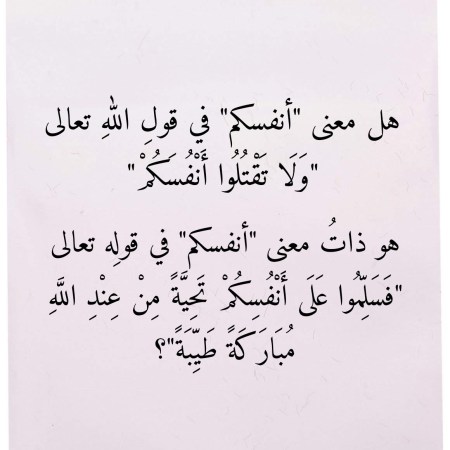 هل معنى "أنفسكم" في قولِ اللهِ تعالى
"وَلَا تَقْتُلُوا أَنْفُسَكُمْ"
هو ذاتُ معنى "أنفسكم" في قولِه تعالى
"فَسَلِّمُوا عَلَى أَنْفُسِكُمْ تَحِيَّةً مِنْ عِنْدِ اللَّهِ
مُبَارَكَةً طَيِّبَةً"؟